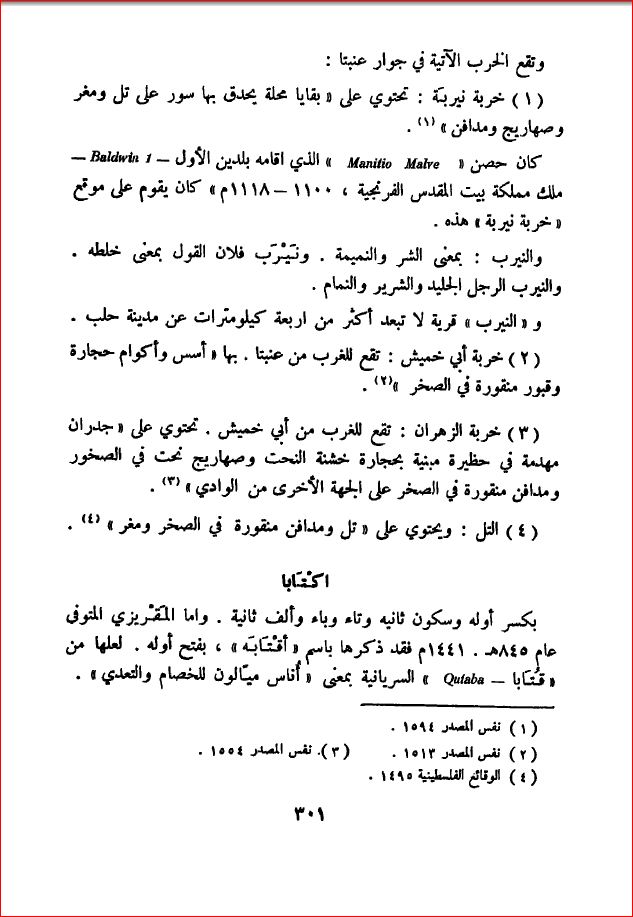 وتقع الخرب الآتية في جوار عنبتا :
(١) خربة نيربة : تحتوي على « بقايا محلة يحدق بها سور على تل ومغر
وصهاريج ومدافن » (١) .
كان حصن « Manitio Malve » الذي اقامه بلدين الأول – Baldwin 1 –
ملك مملكة بيت المقدس الفرنجية ، ١١٠٠ – ١١١٨م » كان يقوم على موقع
« خربة نيربة » هذه .
والنيرب : بمعنى الشر والنميمة . ونَيْرَب فلان القول بمعنى خلطه .
والنيرب الرجل الجليد والشرير والنمام .
و « النيرب » قرية لا تبعد أكثر من اربعة كيلومترات عن مدينة حلب .
(٢) خربة أبي خميش : تقع للغرب من عنبتا . بها « أسس وأكوام حجارة
وقبور منقورة في الصخر »(٢) .
(٣) خربة الزهران : تقع للغرب من أبي خميش . تحتوي على « جدران
مهدمة في حظيرة مبنية بحجارة خشنة النحت وصهاريج نحت في الصخور
ومدافن منقورة في الصخر على الجهة الأخرى من الوادي » (٣) .
(٤) التل : ويحتوي على « تل ومدافن منقورة في الصخر ومغر » (٤) .
اكْتَابا
بكسر أوله وسكون ثانيه وتاء وباء وألف ثانية . واما المَقْريزي المتوفى
عام ٨٤٥هـ . ١٤٤١م فقد ذكرها باسم « أقْتَابَه » ، بفتح أوله . لعلها من
« قُتَابا – Qutaba » السريانية بمعنى « أُناس ميّالون للخصام والتعدي » .
(١) نفس المصدر ١٥٩٤ .
(٢) نفس المصدر ١٥١٣ . (٣). نفس المصدر ١٥٥٤ .
(٤) الوقائع الفلسطينية ١٤٩٥ .
٣٠١